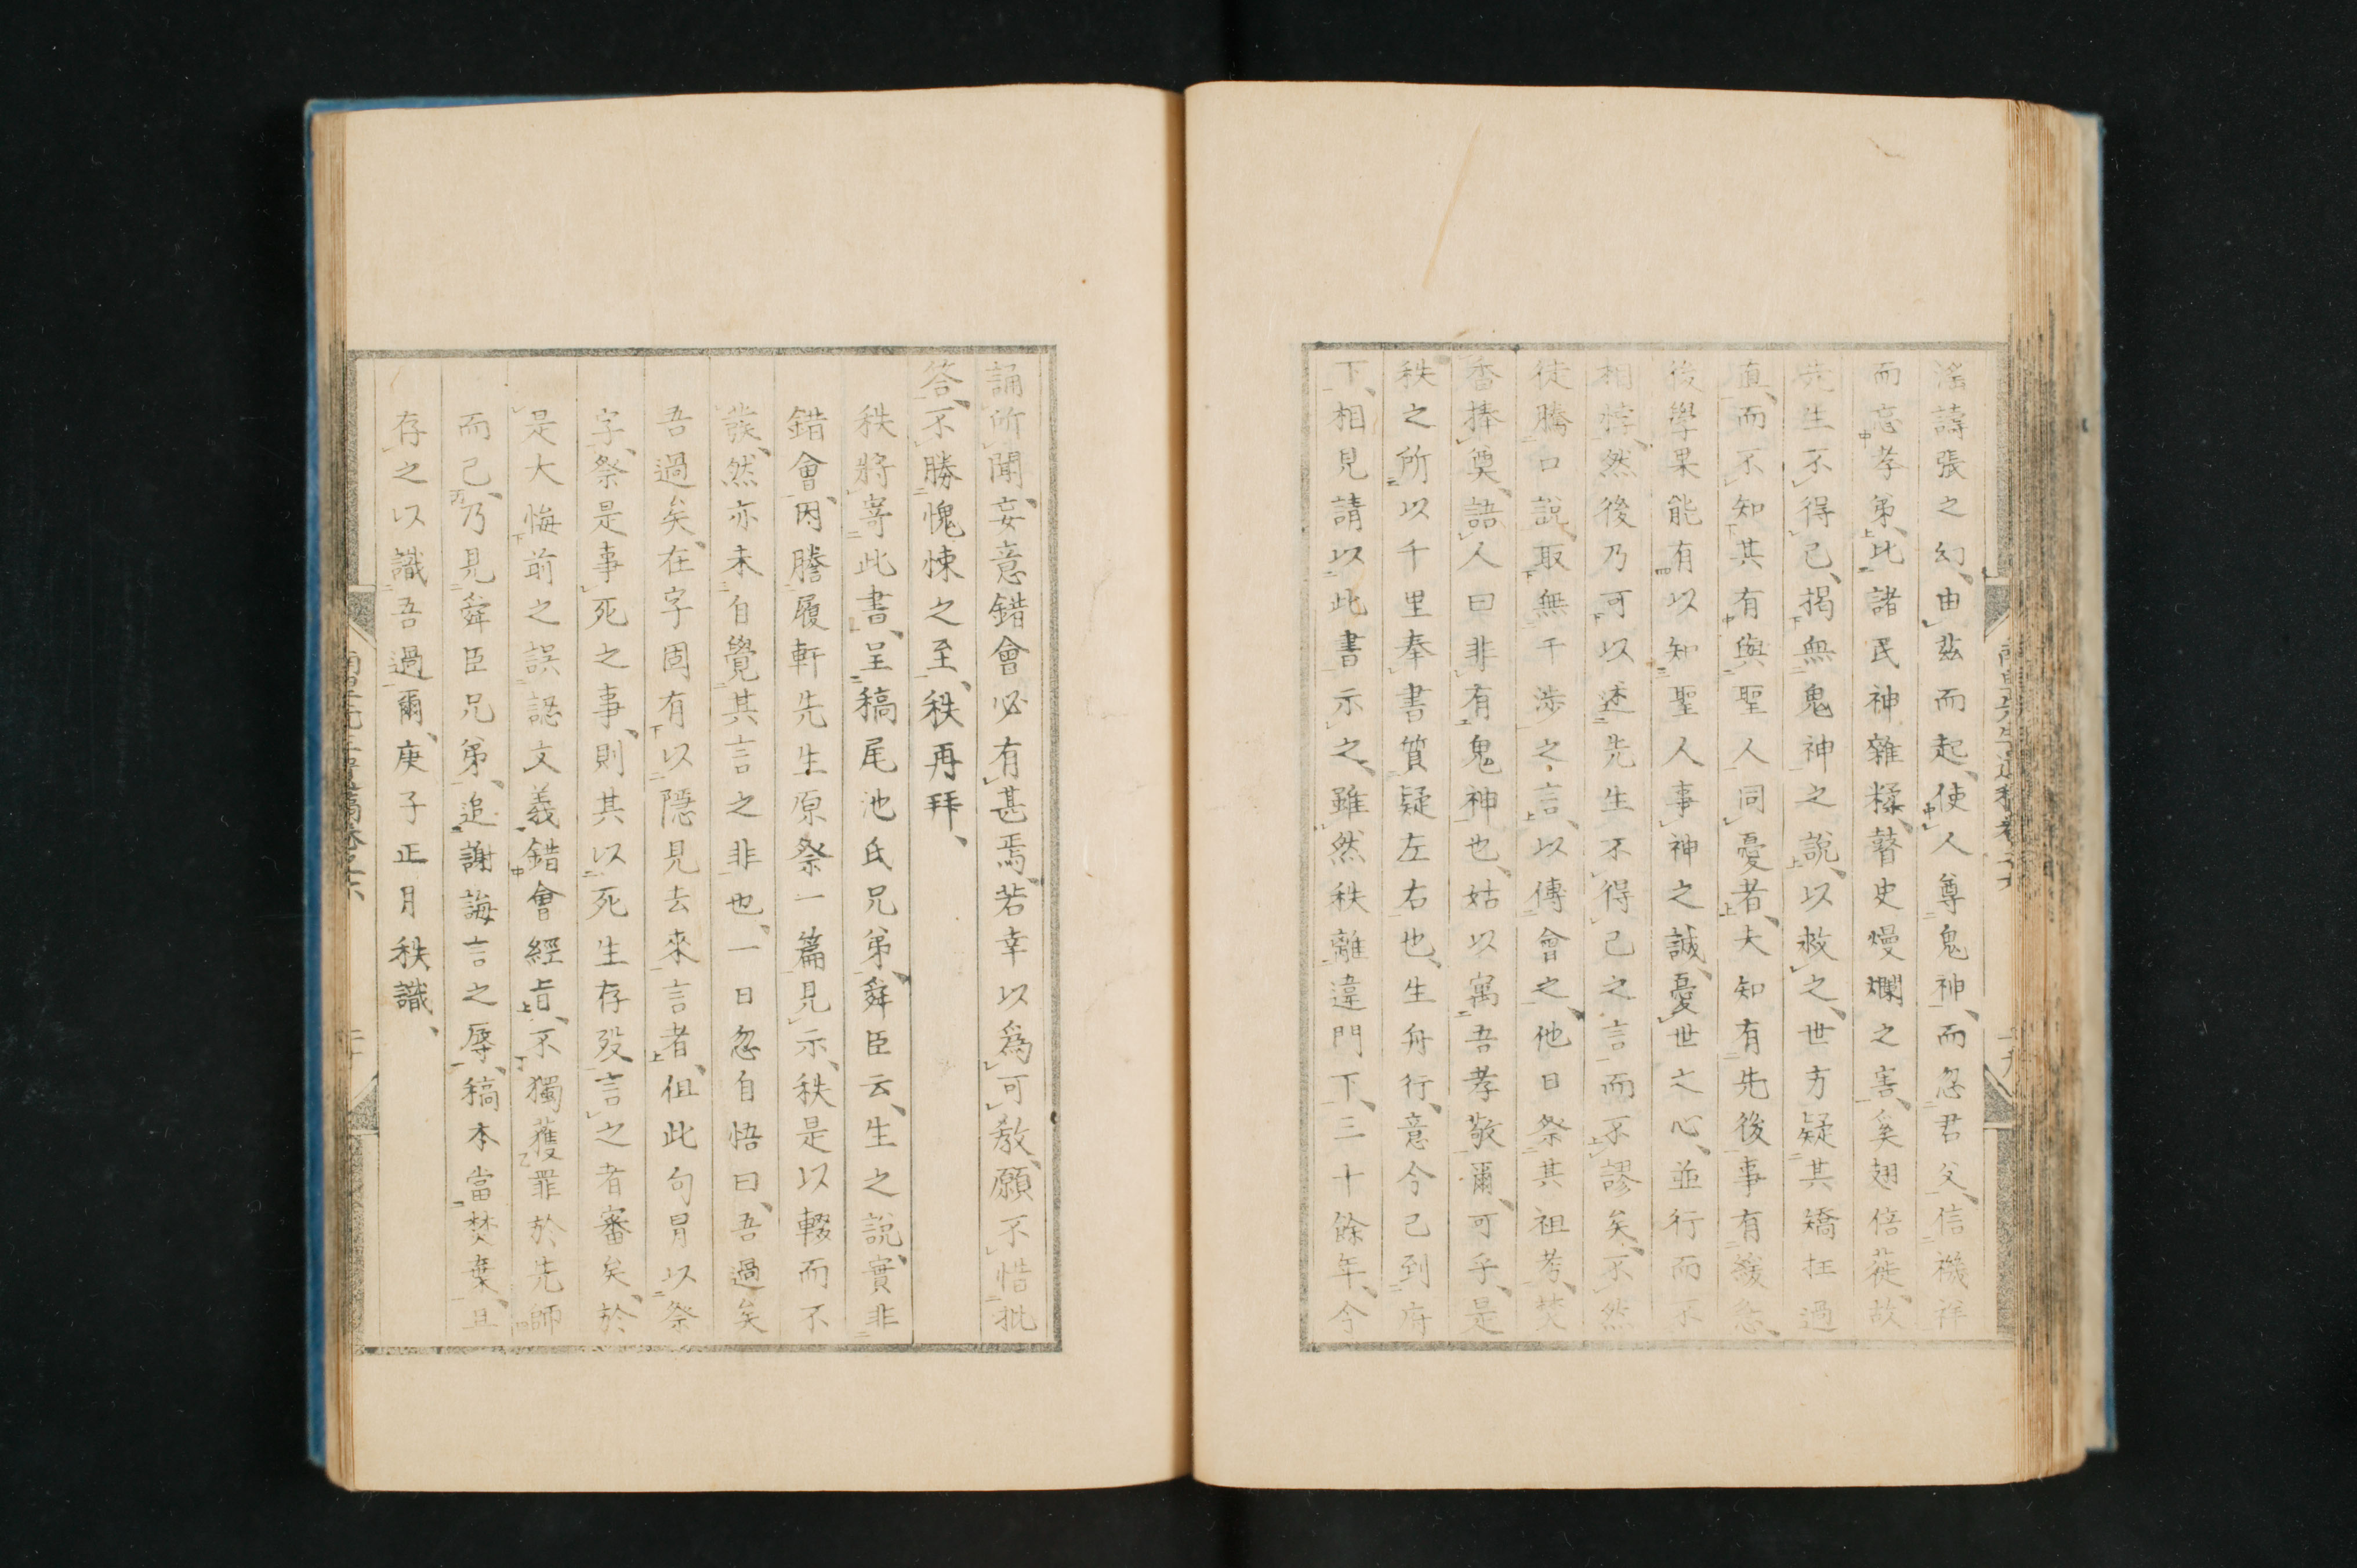 淫譸張之幻、由茲而起、使人尊鬼神、而忽君父、信禨祥
而忘孝弟、比諸民神雜糅、瞽史熳爛之害、奚翅倍蓰、故
先生不得已、揭無鬼神之說、以救之、世方疑其矯枉過
直、而不知其有與聖人同憂者、夫知有先後事有緩急、
後學果能有以知聖人事神之誠、憂世之心、並行而不
相悖、然後乃可以述先生不得已之言而不謬矣、不然
徒騰口說、取無干涉之言、以傳會之、他日祭其祖考、焚
香捧奠、語人曰非有鬼神也、姑以寓吾孝敬爾、可乎、是
秩之所以千里奉書質疑左右也、生舟行、意今已到府
下、相見請以此書示之、雖然秩離違門下、三十餘年、今
誦所聞、妄意錯會必有甚焉、若幸以爲可教、願不惜批
答、不勝愧悚之至、秩再拜、
秩將寄此書、呈稿尾池氏兄弟、舜臣云、生之說、實非
錯會、因謄履軒先生原祭一篇見示、秩是以輟而不
發、然亦未自覺其言之非也、一日忽自悟曰、吾過矣
吾過矣、在字固有以隱見去來言者、但此句冐以祭
字、祭是事死之事、則其以死生存歿言之者審矣、於
是大悔前之誤認文義錯會經旨、不獨獲罪於先師
而已、乃見舜臣兄弟、追謝誨言之辱、稿本當焚棄、且
存之以識吾過爾、庚子正月秩識、